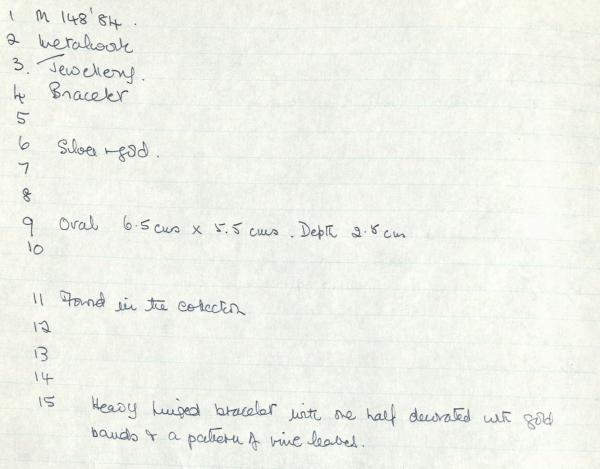 1 M 148'84.
2 Metalwork
3. Jewellery.
4 Bracelet
5
6 Silver + gold.
7
8
9 Oval 6.5 cms x 5.5 cms. Depth 2.5 cm
10
11 Found in the collection
12
13
14
15 Heavy hinged bracelet with one half decorated with gold
bands & a pattern of vine leaves.